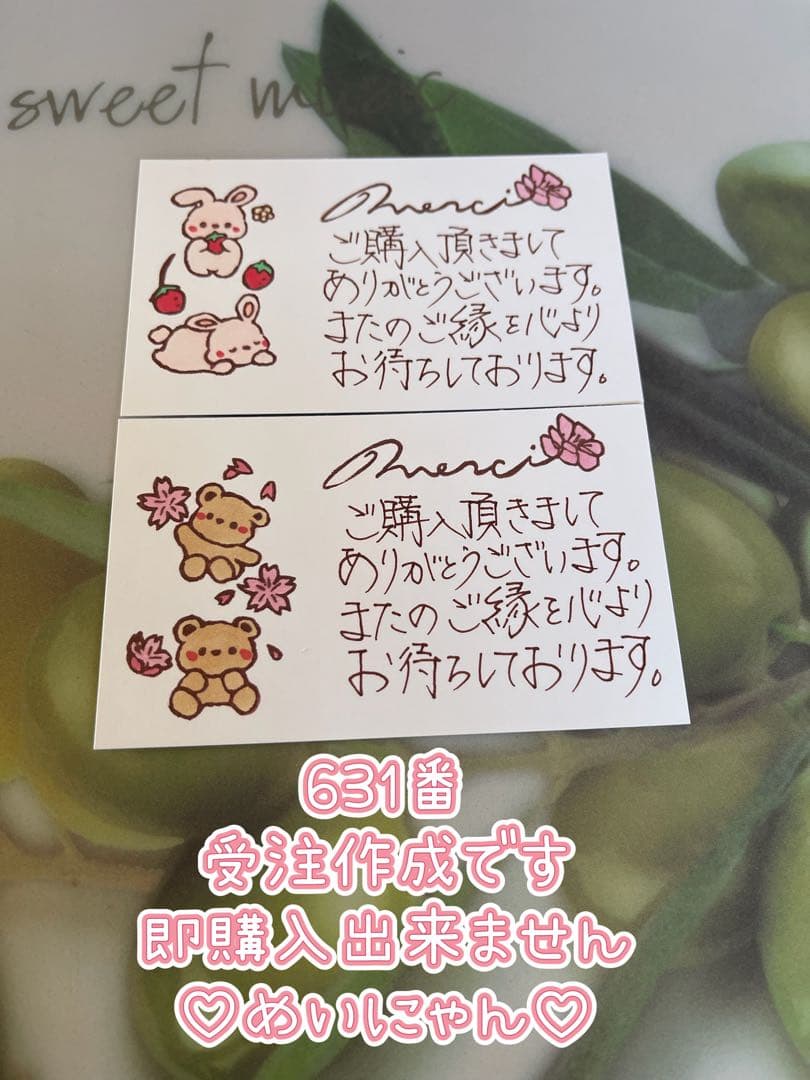 sweet music
merci
ご購入頂きまして
ありがとうございます。
またのご縁を心より
お待ちしております。
merci
ご購入頂きまして
ありがとうございます。
またのご縁を心より
お待ちしております。
631番
受注作成です
即購入出来ません
♡めいにゃん♡